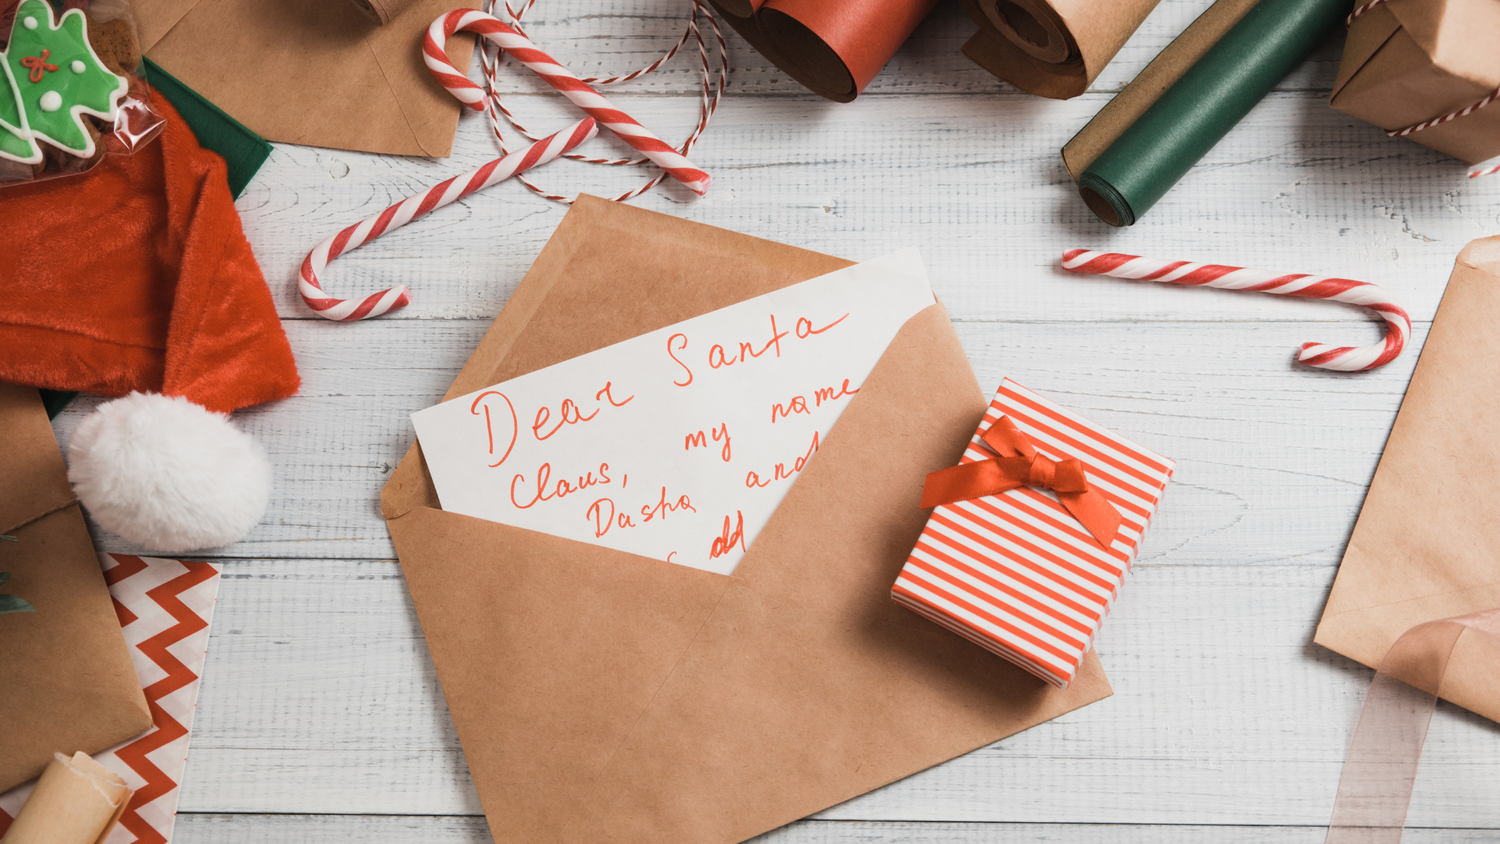 Dear Santa
Claus, my name
Dasha and
old